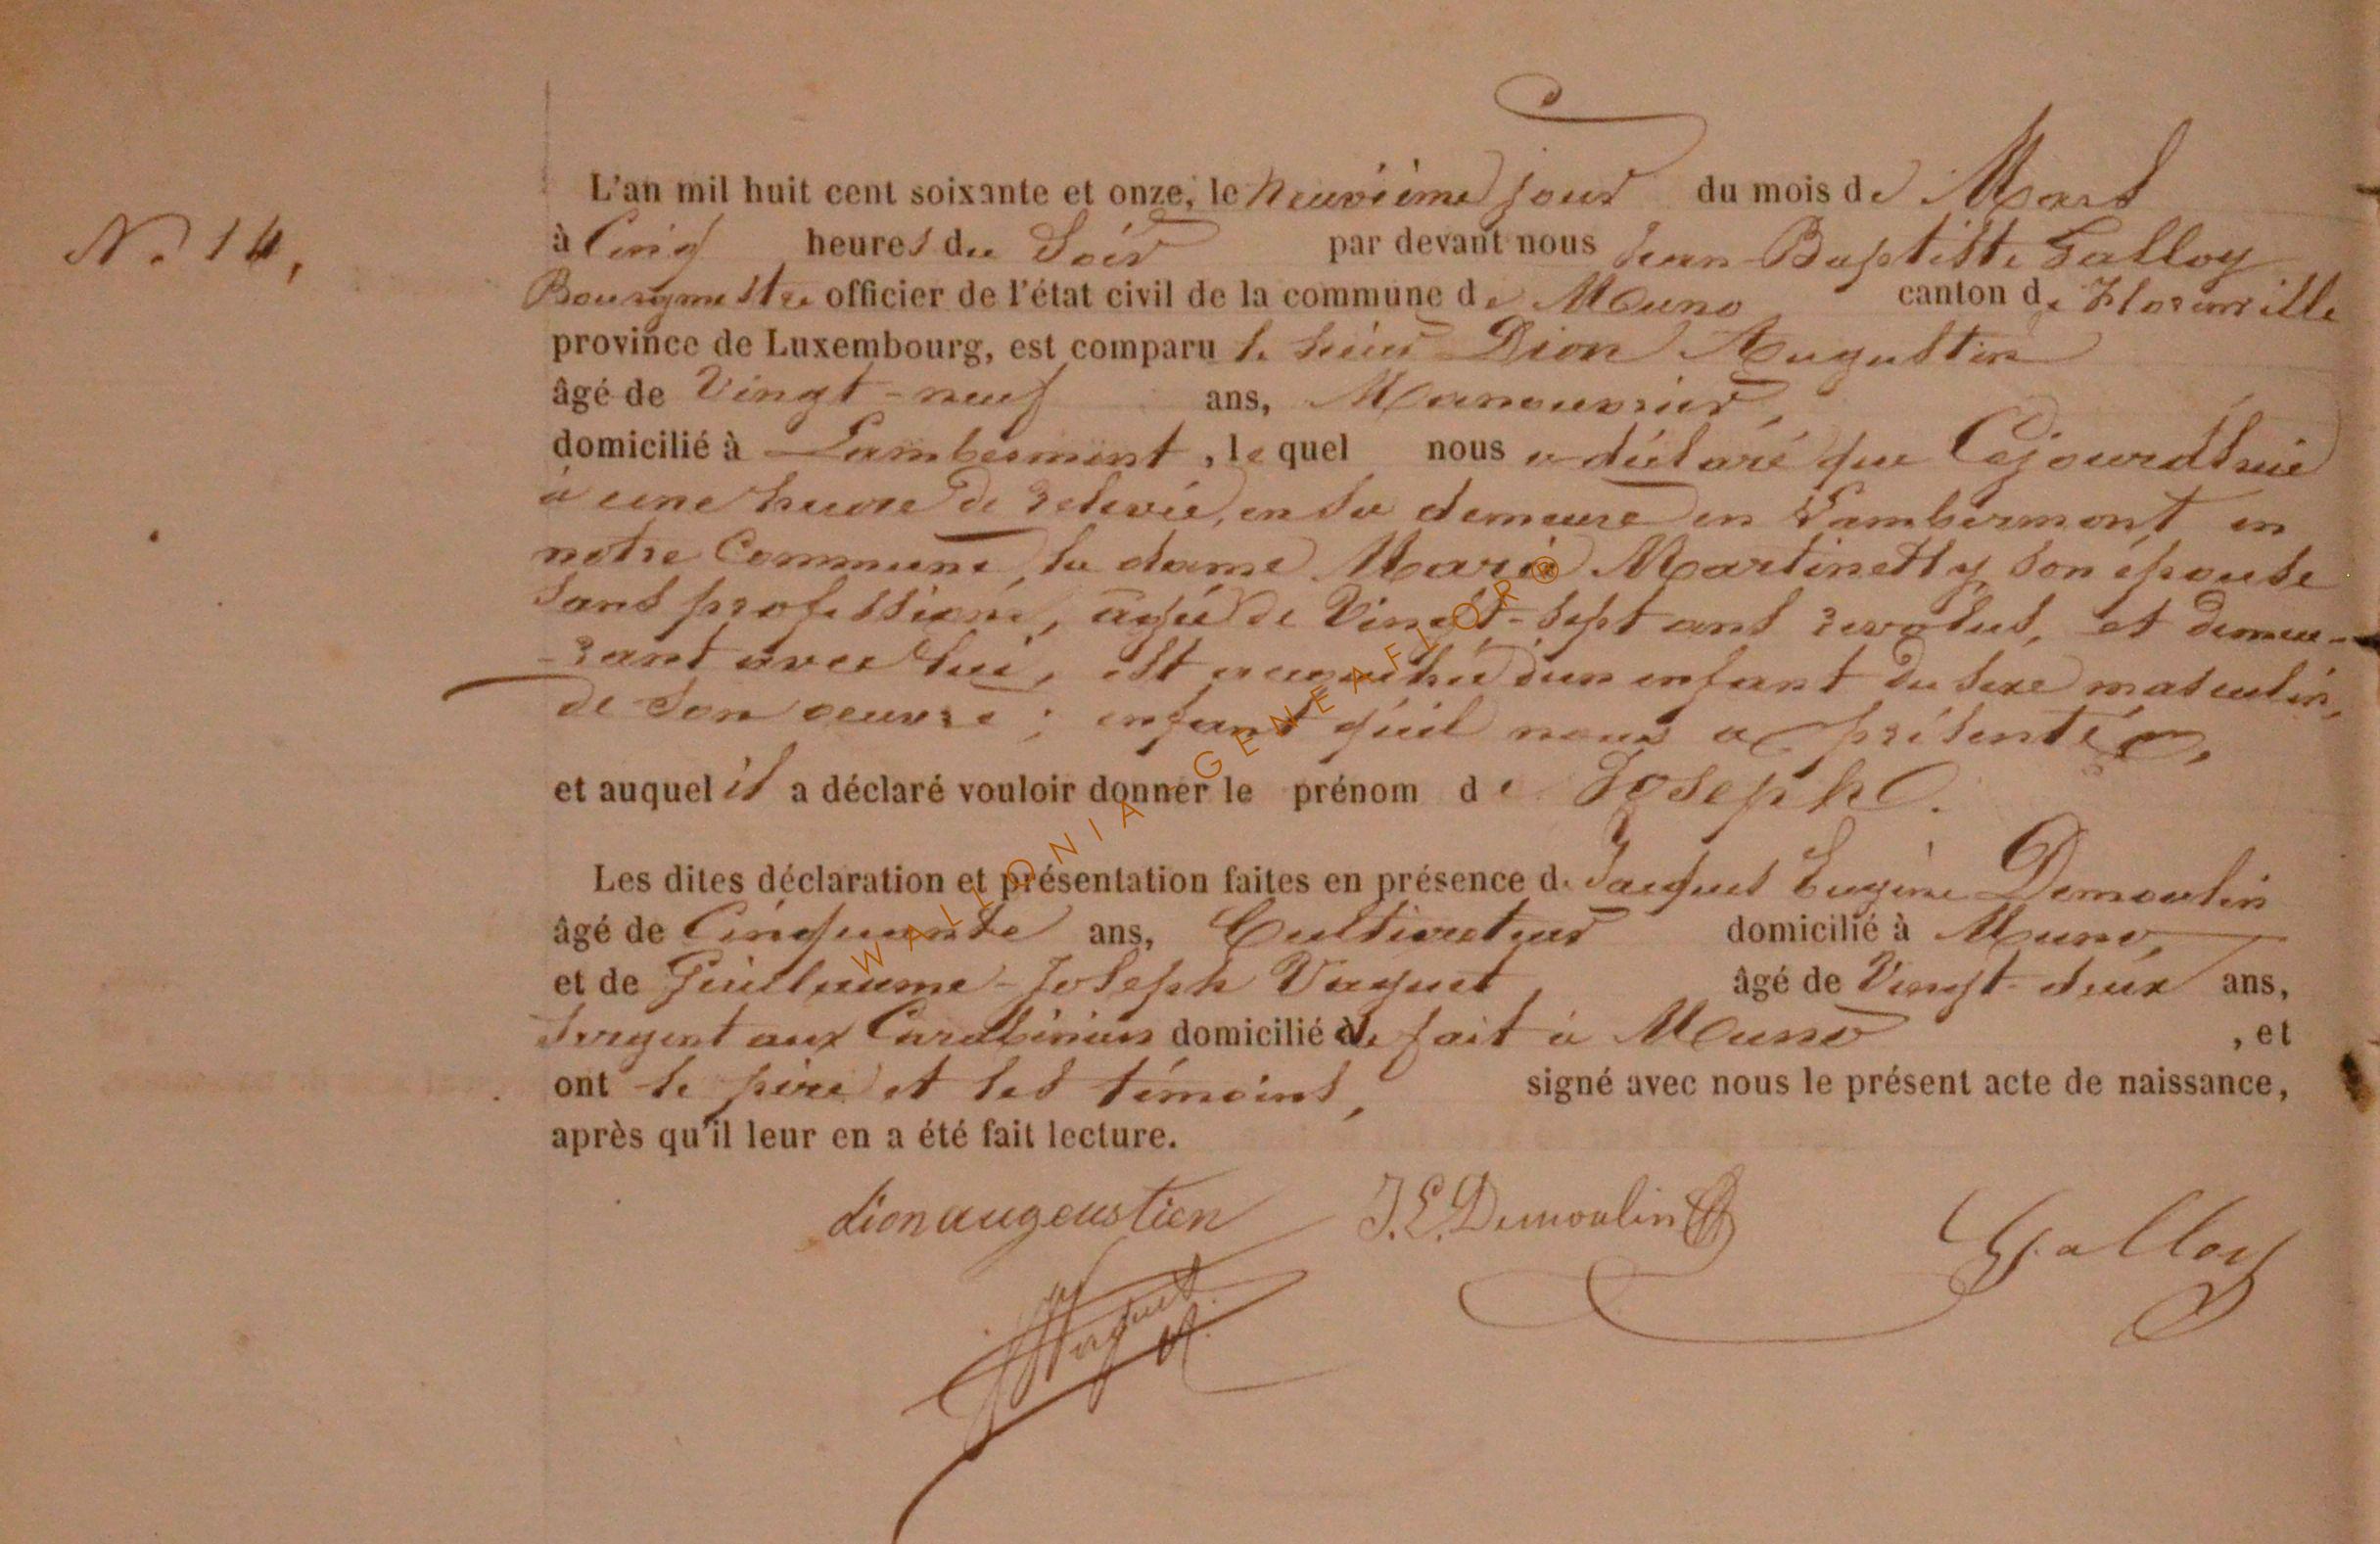 N.° 14,
L'an mil huit cent soixante et onze, le neuvième jour du mois de Mars
à Cinq heures du Soir par devant nous Jean Baptiste Galloy
Bourgmestre officier de l'état civil de la commune de Muno canton de Florenville
province de Luxembourg, est comparu le sieur Dion Augustin
âgé de Vingt-neuf ans, Manouvrier,
domicilié à Lambermont, lequel nous a déclaré que Cejourdhui
à une heure de relevée, en sa demeure en Lambermont en
notre Commune, la dame Marie Martinetty son épouse
sans profession, agée de Vingt-sept ans revolus, et demeu-
-rant avec lui, est accouchée d'un enfant du sexe masculin,
de son oeuvre ; enfant qu'il nous a présenté,
et auquel il a déclaré vouloir donner le prénom de Joseph.
Les dites déclaration et présentation faites en présence de Jacques Eugène Demoulin
âgé de Cinquante ans, Cultivateur domicilié à Muno,
et de Guillaume-Joseph Vaquet, âgé de Vingt-deux ans,
Sergent aux Carabiniers domicilié de fait à Muno, et
ont le père et les témoins, signé avec nous le présent acte de naissance,
après qu'il leur en a été fait lecture.
dion augeustien J.E. Demoulin Galloy
Vaquet
WALLONIA GENEAFIOR®